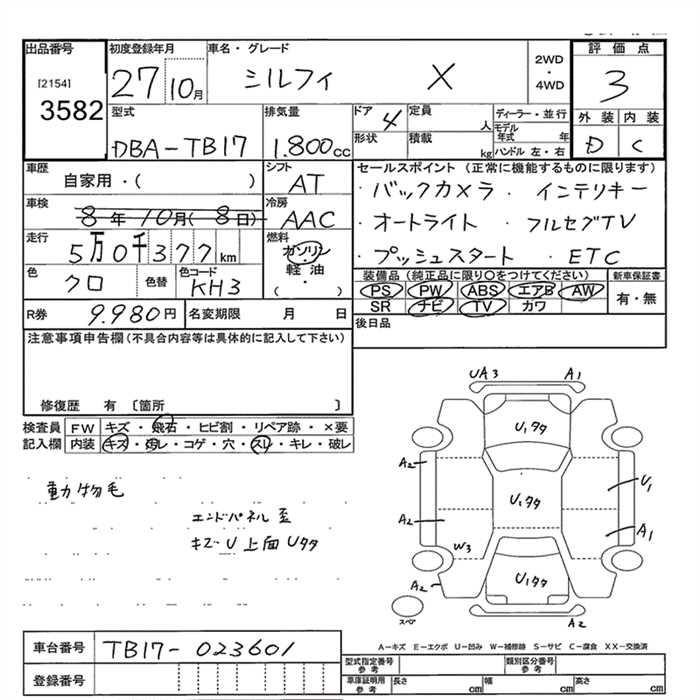 出品番号
[2154]
3582
初度登録年月
27 10月
車名・グレード
シルフィ X
2WD・4WD
評価点
3
型式
DBA-TB17
排気量
1.800cc
ドア 4
定員 人
形状
積載 kg
ディーラー・並行
モデル年式 年
ハンドル 左・右
外装 内装
D C
車歴
自家用・( )
シフト
AT
セールスポイント (正常に機能するものに限ります)
・バックカメラ ・インテリキー
・オートライト ・フルセグTV
・プッシュスタート ・ETC
車検
8年10月(8日)
冷房
AAC
走行
5万0千377km
燃料
ガソリン・軽油
( ・ )
色
クロ
色替
色コード
KH3
装備品 (純正品に限り○をつけてください)
PS PW ABS エアB AW
SR ナビ TV カワ
新車保証書
有・無
R券 9.980円
名変期限 月 日
後日品
注意事項申告欄 (不具合内容等は具体的に記入して下さい)
修復歴 有 〔箇所 〕
検査員記入欄
FW キズ・飛石・ヒビ割・リペア跡・×要
内装 キズ・汚レ・コゲ・穴・スレ・キレ・破レ
動物毛
エンドパネル歪
キズU 上面Uタタ
UA3 A1
U1タタ
A2
U2タタ
U1
A2
W3
A1
U1タタ
A2
スペア
A2
A-キズ E-エクボ U-凹み W-補修跡 S-サビ C-腐食 XX-交換済
車台番号 TB17-023601
登録番号
型式指定番号参考
類別区分番号参考
車庫証明用参考
長さ cm 幅 cm 高さ cm